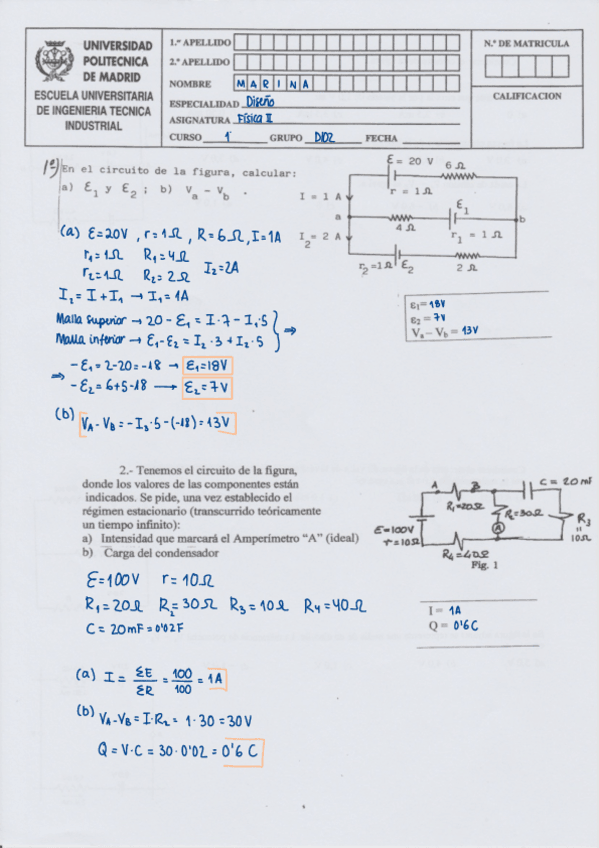 UNIVERSIDAD
POLITECNICA
DE MADRID
ESCUELA UNIVERSITARIA
DE INGENIERIA TECNICA
INDUSTRIAL
1.º APELLIDO
2.º APELLIDO
NOMBRE MARINA
ESPECIALIDAD Diseño
ASIGNATURA Física II
CURSO 1º GRUPO D102 FECHA
N.º DE MATRICULA
CALIFICACION
1º) En el circuito de la figura, calcular:
a) ε1 y ε2 ; b) Va - Vb .
ε = 20 V 6 Ω
r = 1 Ω
I = 1 A
a
4 Ω
ε1
r1 = 1 Ω
b
I2 = 2 A
r2=1Ω ε2
2 Ω
(a) ε=20V , r=1Ω , R=6Ω, I=1A
r1=1Ω R1=4Ω
r2=1Ω R2=2Ω I2=2A
I2=I+I1 → I1=1A
Malla superior → 20-ε1=I·7-I1·5
Malla inferior → ε1-ε2=I2·3+I2·5
⇒
⇒ -ε1=2-20=-18 → ε1=18V
-ε2=6+5-18 → ε2=7V
(b) VA-VB=-I3·5-(-18)=13V
ε1= 18V
ε2 = 7V
Va – Vb = 13V
2.- Tenemos el circuito de la figura,
donde los valores de las componentes están
indicados. Se pide, una vez establecido el
régimen estacionario (transcurrido teóricamente
un tiempo infinito):
a) Intensidad que marcará el Amperímetro “A” (ideal)
b) Carga del condensador
A B C=20mF
R1=20Ω R2=30Ω
A
R3
=
10Ω
E=100V
r=10Ω
R4=40Ω
Fig. 1
ε=100V r=10Ω
R1=20Ω R2=30Ω R3=10Ω R4=40Ω
C=20mF=0'02F
I = 1A
Q = 0'6C
(a) I = ΣE/ΣR = 100/100 = 1A
(b) VA-VB=I·R2= 1·30=30V
Q=V·C=30·0'02=0'6 C